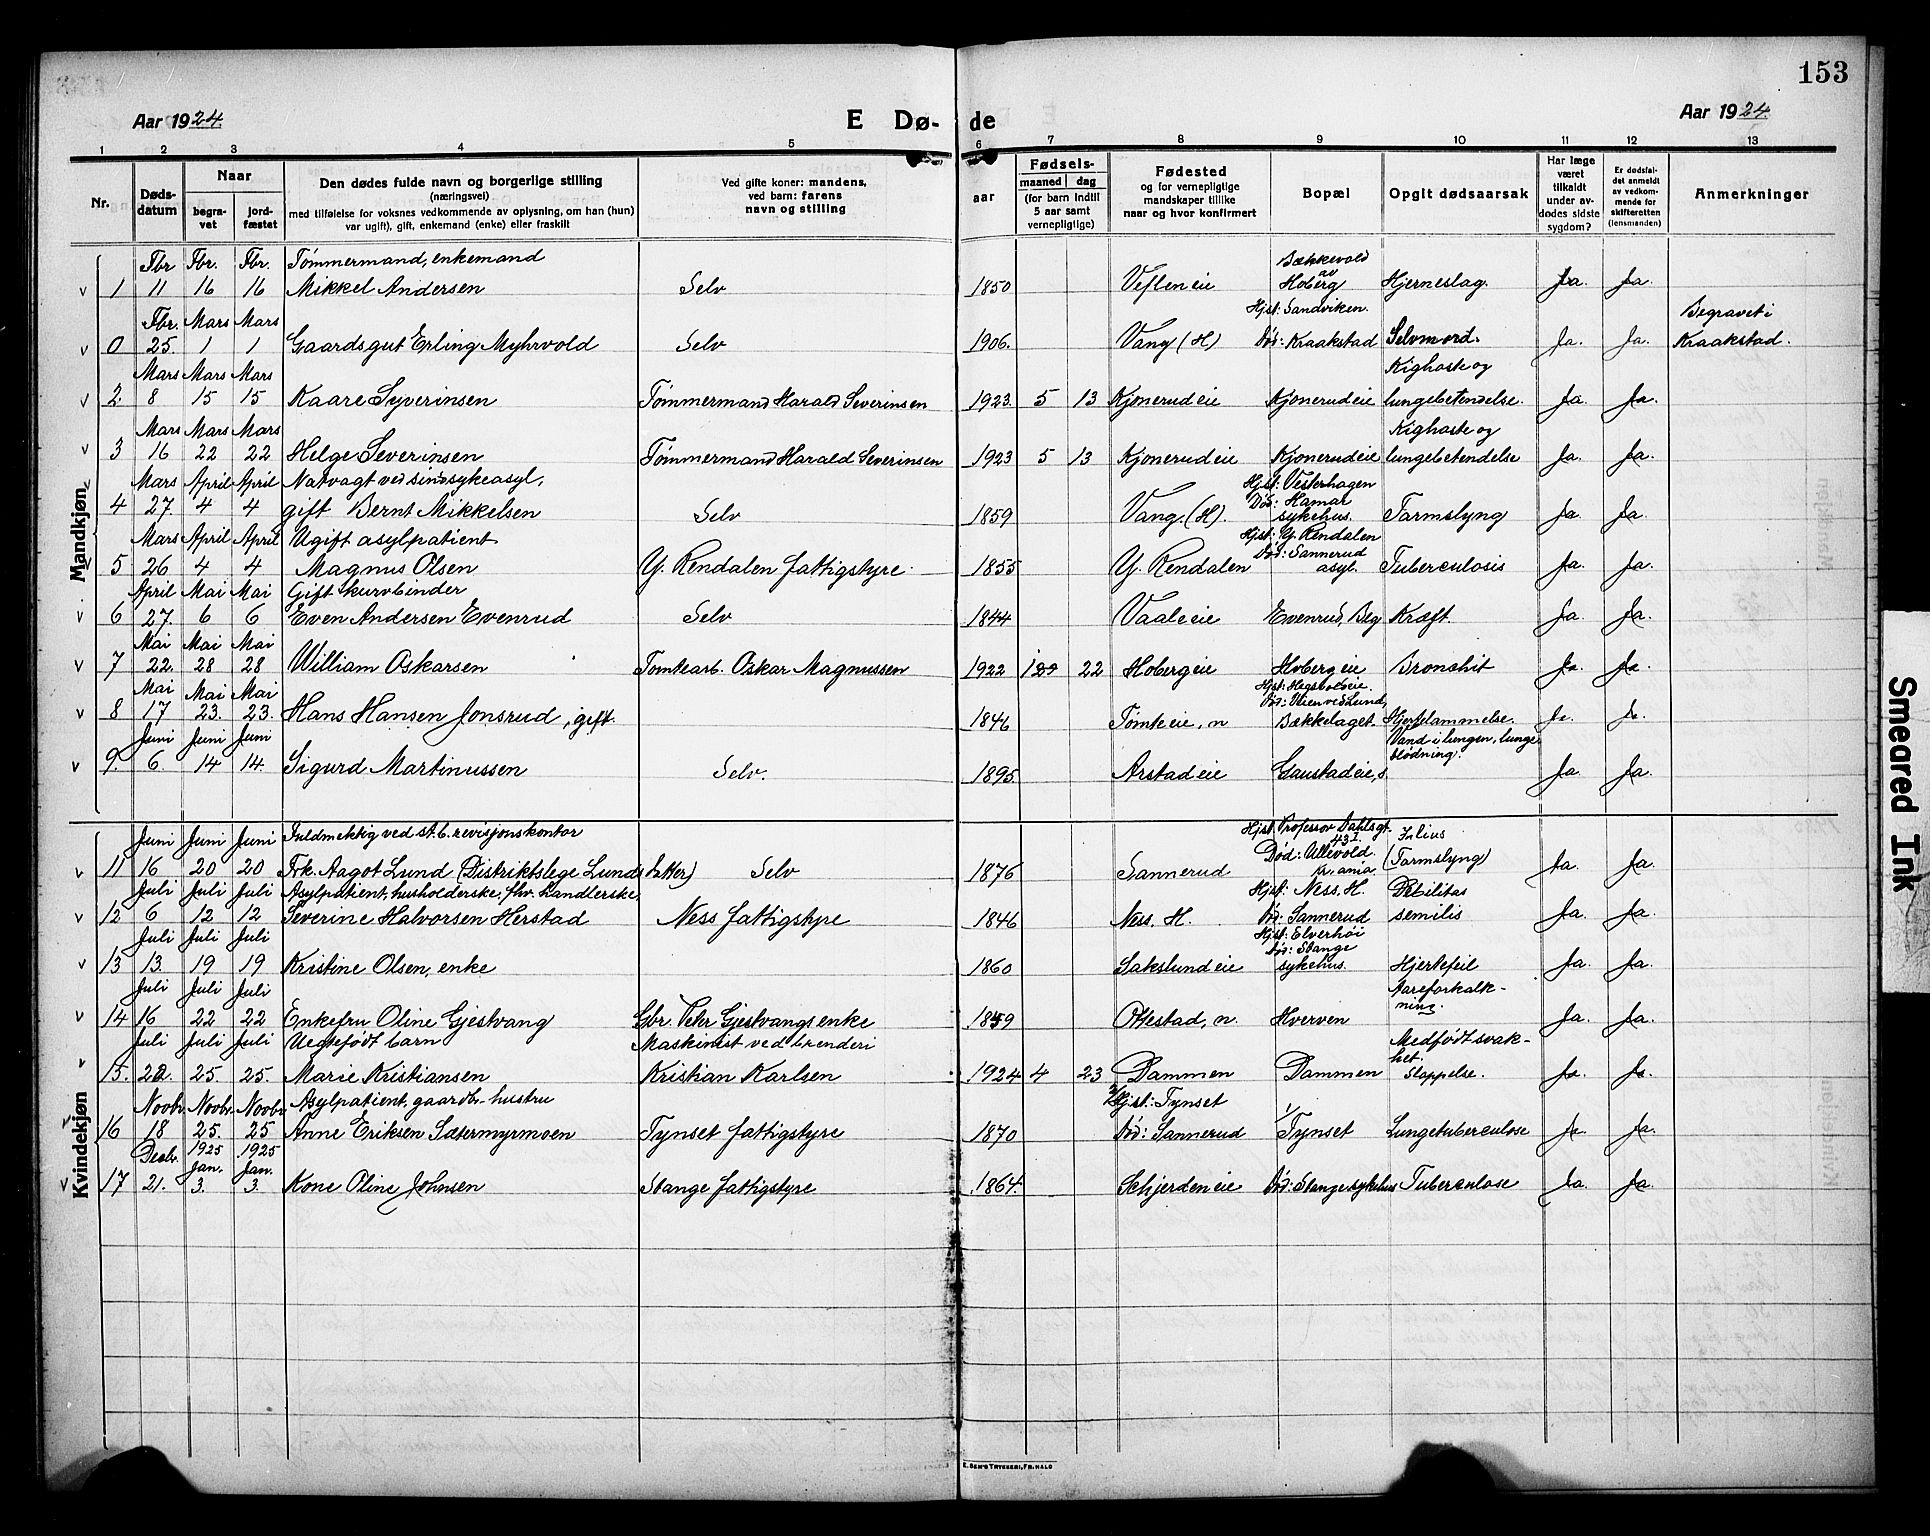 153
Aar 1924.
E Dø-
de
Aar 1924.
1 2 3 4 5 6 7 8 9 10 11 12 13
Nr.
Døds-
datum
Naar
begra-
vet
jord-
fæstet
Den dødes fulde navn og borgerlige stilling
(næringsvei)
med tilføielse for voksnes vedkommende av oplysning, om han (hun)
var ugift), gift, enkemand (enke) eller fraskilt
Ved gifte koner: mandens,
ved barn: farens
navn og stilling
Fødsels-
aar
maaned dag
(for barn indtil
5 aar samt
vernepligtige)
Fødested
og for vernepligtige
mandskaper tillike
naar og hvor konfirmert
Bopæl
Opgit dødsaarsak
Har læge
været
tilkaldt
under av-
dødes sidste
sygdom?
Er dødsfal-
det anmeldt
av vedkom-
mende for
skifteretten
(lensmanden)
Anmerkninger
Mandkjøn
Fbr Fbr. Fbr. Tømmermand, enkemand Bækkevold
av
1 11 16 16 Mikkel Andersen Selv 1850 Veflen eie Hoberg Hjerneslag. Ja. Ja.
Fbr. Mars Mars Hjst: Sandviken. Begravet i
0 25. 1 1 Gaardsgut Erling Myhrvold Selv 1906. Vang (H) Død: Kraakstad Selvmord. Ja. Ja. Kraakstad.
Mars Mars Mars Kighoste og
2. 8 15 15 Kaare Syverinsen Tømmermand Harald Severinsen 1923 5 13 Kjonerud eie Kjonerud eie lungebetendelse. Ja. Ja.
Mars Mars Mars Kighoste og
3 16 22 22 Helge Severinsen Tømmermand Harald Severinsen 1923 5 13 Kjonerud eie Kjonerud eie lungebetendelse Ja. Ja.
Mars April April Natvagt ved sindssykeasyl, Hjst: Vesterhagen
Død: Hamar
4 27. 4 4 gift Bernt Mikkelsen Selv 1859 Vang. (H). sykehus. Tarmslyng Ja. Ja.
Mars April April Ugift asylpatient Hjst: Y. Rendalen
Død: Sannerud
5 26 4 4 Magnus Olsen Y. Rendalen fattigstyre 1855 Y. Rendalen asyl. Tuberculosis Ja. Ja.
April Mai Mai Gift kurvbinder
6 27. 6 6 Even Andersen Evenrud Selv 1844 Vaaleie Evenrud, Beg Kræft. Ja. Ja.
Mai Mai Mai
7 22. 28 28 William Oskarsen Tomtearb. Oskar Magnussen 1922 22 Hoberg eie Hoberg eie Bronchit Ja. Ja.
Mai Mai Mai
8 17 23. 23. Hans Hansen Jonsrud, gift. 1846 Tømte eie, n Bækkelaget. Ja. Ja.
Juni Juni Juni Vand i lungen, lunge
blødning.
9. 6. 14 14. Sigurd Martinussen Selv. 1895 Arstad eie Gaustad eie, s Ja. Ja.
Kvindekjøn
Juni Juni Juni Fuldmektig ved st. b. revisjonskontor Hjst. Professor Dahlsgt. 43 I
Død: Ullevold. Ilius
11 16 20 20 Frk. Aagot Lund (Distriktslege Lunds datter) Selv 1876 Sannerud Kr.ania. (Tarmslyng) Ja. Ja.
Juli Juli Juli Asylpatient, husholderske, fhv. handlerske, Hjst: Ness. H. Debilitas
12 6 12 12 Severine Halvorsen Herstad Ness fattigstyre 1846 Ness. H. Død: Sannerud semilis Ja. Ja.
Juli Juli Juli Hjst: Elverhøi
Død: Stange
13 13. 19 19 Kristine Olsen, enke 1860 Sakslund eie sykehus. Hjertefeil Ja. Ja.
Juli Juli Juli Aareforkalk-
ning.
14 16 22 22 Enkefru Oline Gjestvang Gbr. Petr Gjestvangs enke 1859 Ottestad, n. Hverven Ja. Ja.
Juli Juli Juli Uegtefødt barn Maskinist ved brenderi Medfødt svak-
het.
15. 22. 25. 25. Marie Kristiansen Kristian Karlsen 1924 4 23 Dammen Dammen Stoppelse. Ja. Ja.
Novbr. Novbr. Novbr Asylpatient, gaardbr-hustru Hjst: Tynset
16 18 25. 25 Anne Eriksen Sætermyrmoen Tynset fattigstyre 1870 Død: Sannerud Tynset Lungetuberculose Ja. Ja.
Decbr. 1925 Jan. 1925 Jan.
17 21. 3. 3. Kone Oline Johnsen Stange fattigstyre 1864. Skjerden eie Død: Stange sykehus Tuberculose Ja. Ja.
E. SEM'S TRYKKERI, FR.HALD
Smeared Ink